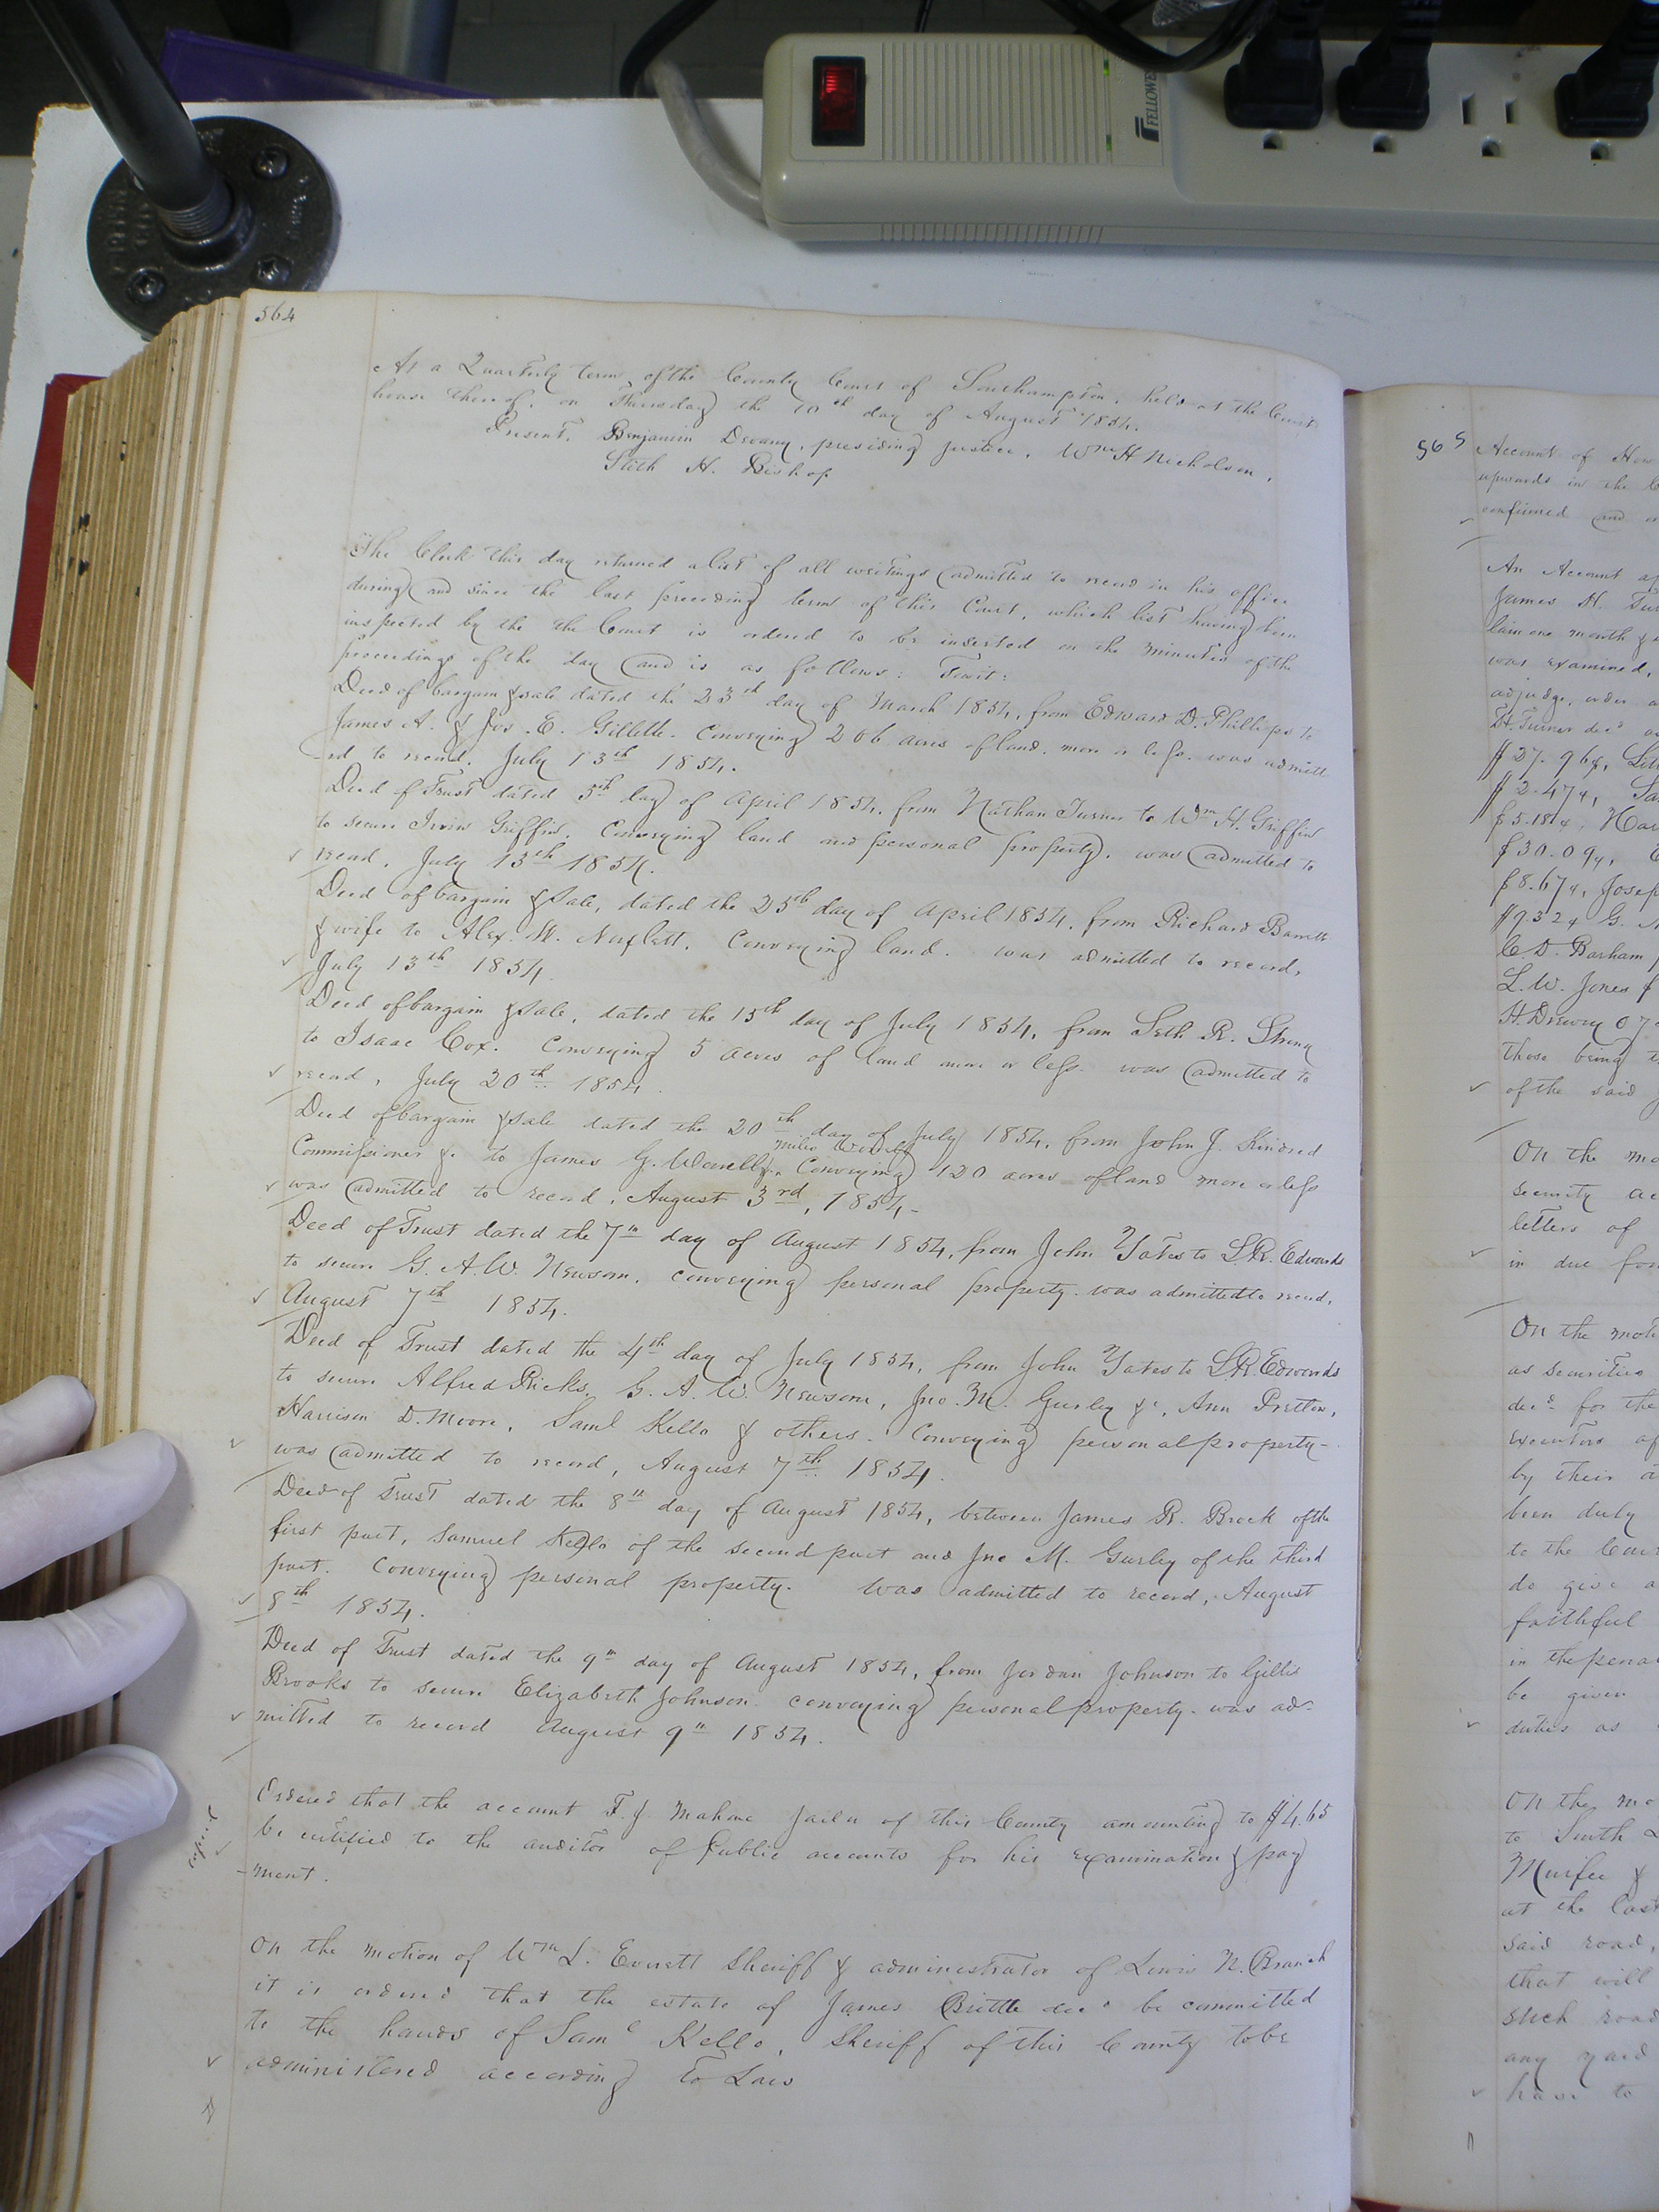 FELLOWE
564
At a Quarterly term of the County Court of Southampton, held at the Court
house thereof, on Thursday the 10th day of August 1854.
Present, Benjamin Devany, presiding justice, Wm H Nicholson,
Stith H. Bishop
The Clerk this day returned a list of all writings admitted to record in his office
during and since the last preceding term of this Court, which list having been
inspected by the the Court is ordered to be inserted on the minutes of the
proceedings of the day and is as follows: Towit:
Deed of bargain & sale dated the 23rd day of March 1854, from Edward D. Phillips to
James A. & Jos. E. Gillette. Conveying 206 acres of land. more or less. was admitt
-ed to record. July 13th 1854.
Deed of Trust dated 5th day of April 1854. from Nathan Turner to Wm H. Griffin
to secure Irvin Griffin. Conveying land and personal property. was admitted to
record. July 13th 1854.
Deed of bargain & Sale, dated the 25th day of April 1854, from Richard Barrett
& wife to Alex. W. Norfleet. Conveying land. was admitted to record,
July 13th 1854.
Deed of bargain & Sale, dated the 15th day of July 1854, from Seth. R. Strong
to Isaac Cox. Conveying 5 acres of land more or less. was admitted to
record, July 20th 1854.
Deed of bargain & sale dated the 20th day of July 1854, from John J. Kindred
Miles
Commissioner &c to James G. Conveying 120 acres of land more or less
was admitted to record, August 3rd, 1854-
Deed of Trust dated the 7th day of August 1854, from John Yates to L.R. Edwards
to secure G. A. W. Newsom, conveying personal property. was admitted to record,
August 7th 1854.
Deed of Trust dated the 4th day of July 1854, from John Yates to L.R. Edwards
to secure Alfred Ricks, G. A. W. Newsom, Jno. M. Gurley &c, Ann Pretlow,
Harrison D. Moore, Saml Kello & others. Conveying personal property-
was admitted to record, August 7th 1854.
Deed of Trust dated the 8th day of August 1854, between James R. Brock of the
first part, Samuel Kello of the second part and Jno M. Gurley of the third
part. Conveying personal property. Was admitted to record, August
8th 1854.
Deed of Trust dated the 9th day of August 1854, from Jordan Johnson to Gillis
Brooks to secure Elizabeth Johnson. conveying personal property. was ad-
mitted to record August 9th 1854.
Ordered that the account F. J. Mahone Jailer of this County amounting to $4.65
be certified to the auditor of Public accounts for his examination & pay
-ment.
copied
On the motion of Wm L. Everett Sheriff & administrator of Lewis N. Branch
it is ordered that the estate of James Brittle decd be committed
to the hands of Saml Kello, Sheriff of this County to be
administered according to Law
565
Account of
upwards in the
confirmed and
An Account
James H. Tur
was examined,
adjudge, order
H. Turner decd
$27.96¢,
$2.47¢,
$5.18¢, Har
$30.09¢,
$8.67¢, Josep
$9.32¢ G.
C. D. Barham
L. W. Jones $
H. Drewry 07
those being
of the said
On the mo
security
letters of
in due for
On the moti
as securities
decd for the
executors of
by their
been duly
to the Cour
do give
faithful
in the pena
be given
duties as
On the mo
to
at the last
said road,
that will
such road
any yard
have to